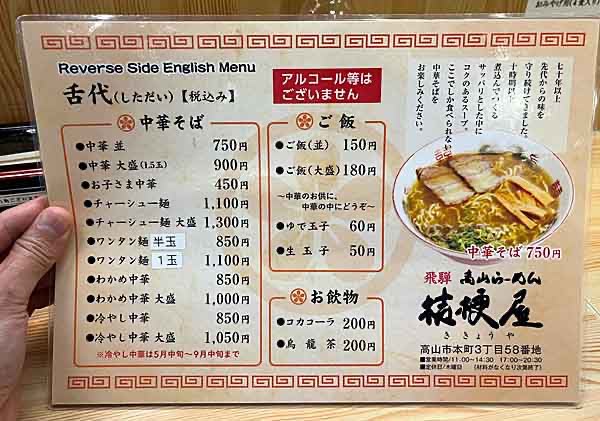 おみやげ用(4食入り)
Reverse Side English Menu
舌代(しただい)【税込み】
アルコール等は
ございません
中華そば
●中華 並 750円
●中華 大盛(1.5玉) 900円
●お子さま中華 450円
●チャーシュー麺 1,100円
●チャーシュー麺 大盛 1,300円
●ワンタン麺 半玉 850円
●ワンタン麺 1玉 1,100円
●わかめ中華 850円
●わかめ中華 大盛 1,000円
●冷やし中華 850円
●冷やし中華 大盛 1,050円
※冷やし中華は5月中旬〜9月中旬まで
ご飯
●ご飯(並) 150円
●ご飯(大盛) 180円
〜中華のお供に、
中華の中にどうぞ〜
●ゆで玉子 60円
●生玉子 50円
お飲物
●コカコーラ 200円
●烏龍茶 200円
七十年以上
先代からの味を
守り続けてきました。
十時間以上
煮込んでつくる
サッパリとした中に
コクのあるスープ。
ここでしか食べられない
中華そばを
お楽しみください。
中華そば 750円
飛騨 高山らーめん
桔梗屋
ききょうや
高山市本町3丁目58番地
■営業時間/11:00〜14:30 17:00〜20:30
■定休日/木曜日 (材料がなくなり次第終了)